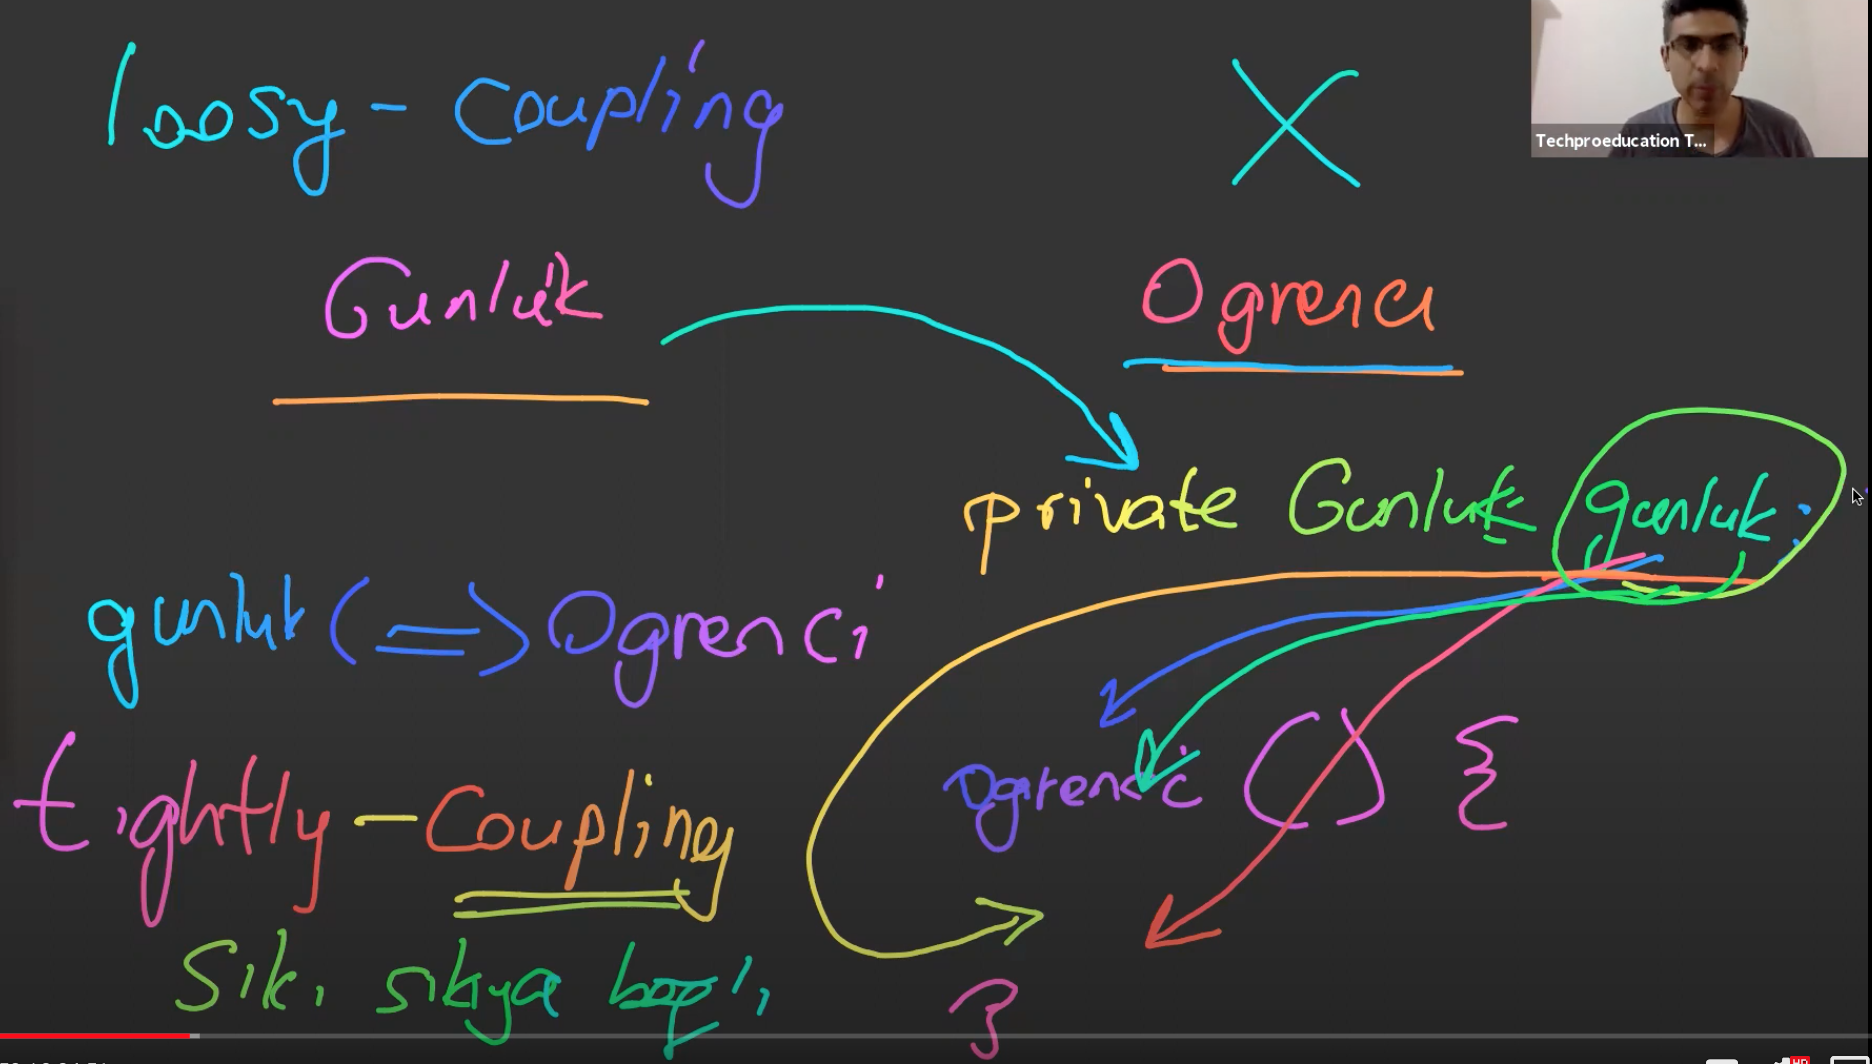 loosy - Coupling
Techproeducation T...
Gunluk
Ogrenci
private Gunluk gunluk ;
gunluk (=> Ogrenci
Ogrenci () {
tightly - Coupling
Siki sikiya
}
HD